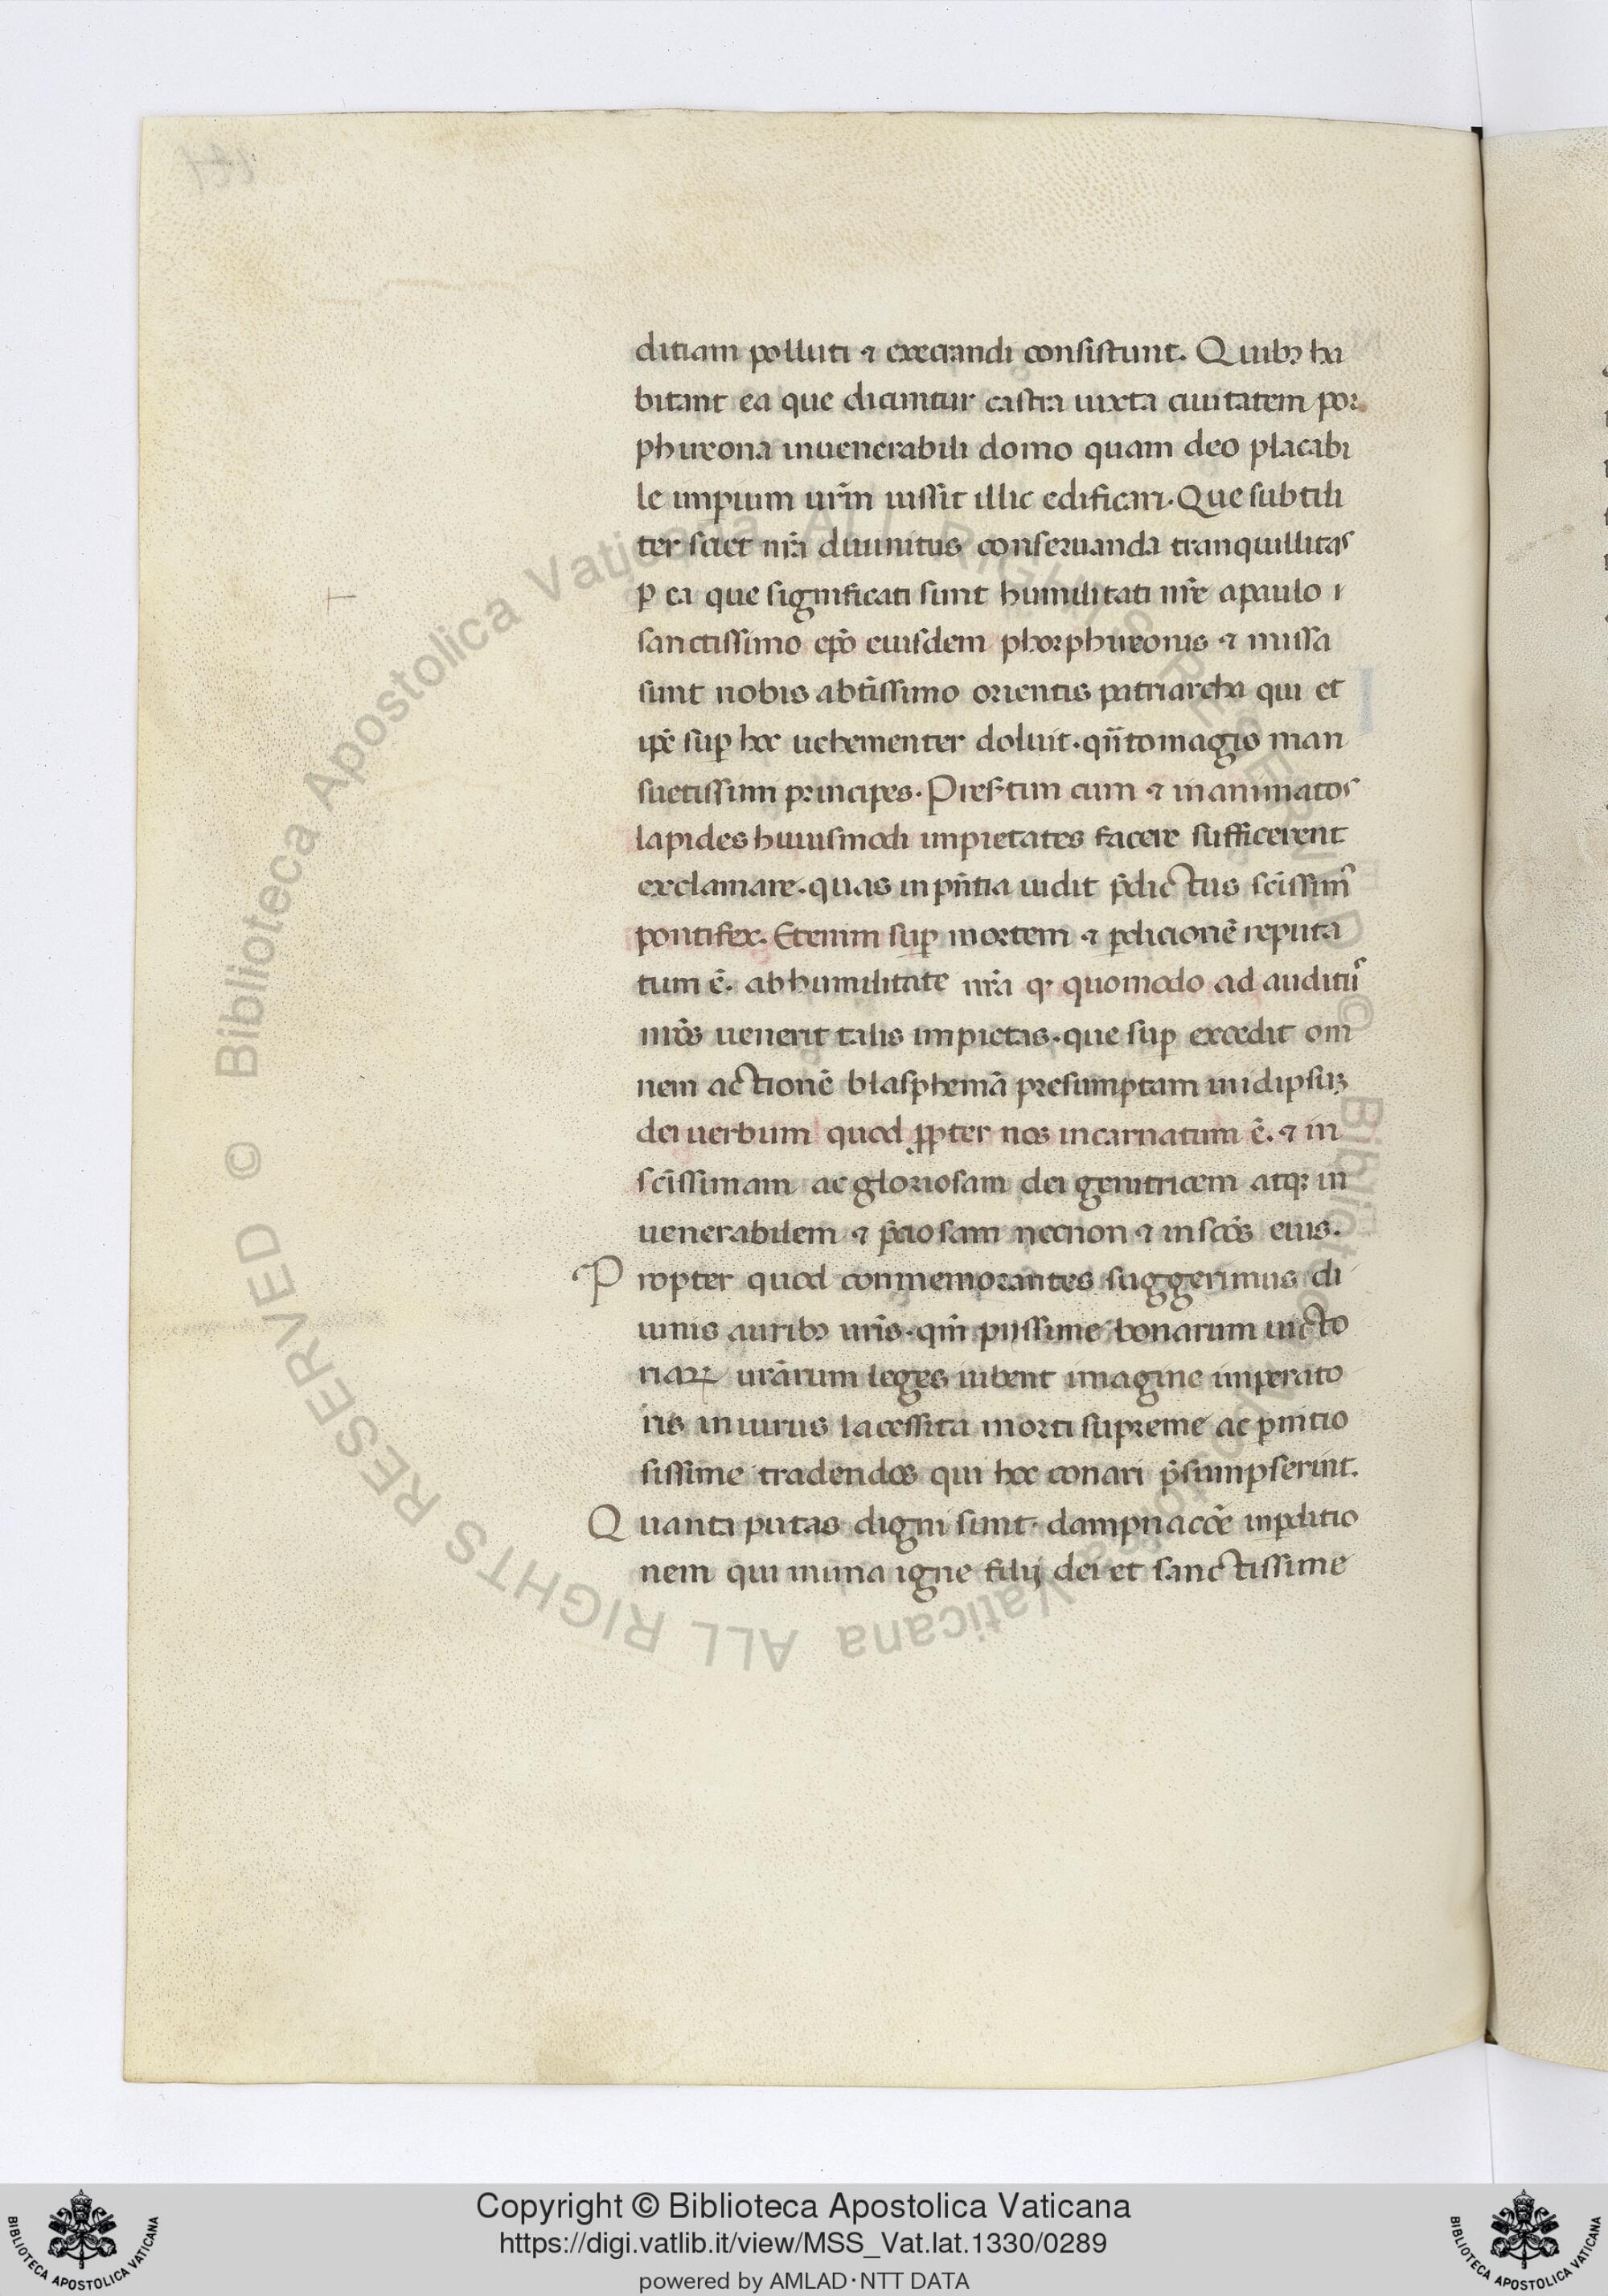 ditiam polluti ⁊ execrandi consistunt. Quibꝫ ha
bitant ea que dicuntur castra iuxta ciuitatem por
phireona inuenerabili domo quam deo placabi
le impium ur̄m iussit illic edificari. Que subtili
ter sciet nr̄a diuinitus conseruanda tranquillitas
ꝑ ea que significati sunt humilitati nr̄e apaulo i
sanctissimo ep̄o eiusdem phorphireonis ⁊ missa
sunt nobis abtissimo orientis patriarcha qui et
ip̄e suꝑ hoc uehementer doluit. qn̄to magis man
suetissimi principes. Presertim cum ⁊ inanimatos
lapides huiusmodi impietates facere sufficerent
exclamare. quas in pn̄tia uidit p̄dictus sc̄issim᾽
pontifex. Etenim suꝑ mortem ⁊ ꝑdicionē reputa
tum ē. ab humilitate nr̄a q quomodo ad auditū᾽
nr̄os uenerit talis impietas. que suꝑ excedit om
nem actionē blasphemā presumptam inidipsuꝫ
dei uerbum quod ꝓpter nos incarnatum ē. ⁊ in
sc̄issimam ac gloriosam dei genitricem atqꝫ in
uenerabilem ⁊ p̄ciosam necnon ⁊ in sc̄os eius.
Propter quod conmemorantes suggerimus di
uinis auribꝫ ur̄is. qm̄ piissime bonarum uicto
riaꝝ ur̄arum leges iubent imagine imperato
ris iniuriis lacessita morti supreme ac pnitio
sissime tradendos qui hoc conari p̄sumpserint.
Quanta putas digni sunt. dampnacōe inꝑditio
nem qui in una igne filij dei et sanctissime
Copyright © Biblioteca Apostolica Vaticana
https://digi.vatlib.it/view/MSS_Vat.lat.1330/0289
powered by AMLAD · NTT DATA
BIBLIOTECA APOSTOLICA VATICANA
BIBLIOTECA APOSTOLICA VATICANA
© Biblioteca Apostolica Vaticana ALL RIGHTS RESERVED © Biblioteca Apostolica Vaticana ALL RIGHTS RESERVED